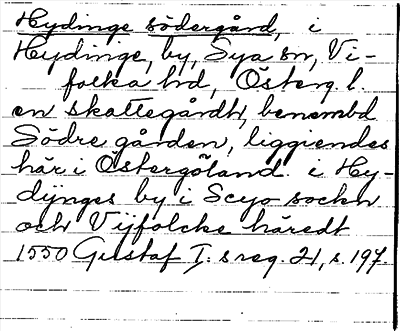 Hydinge södergård, i
Hydinge, by, Sya sn, Vi-
folka hd, Österg. l.
en skattegårdh, benembd
Södre gården, liggiendes
här i Östergötland i Hy-
dijnges by i Scyo sockn
och Vijfolcke häredt
1550 Gustaf I. s reg. 21, s. 197.